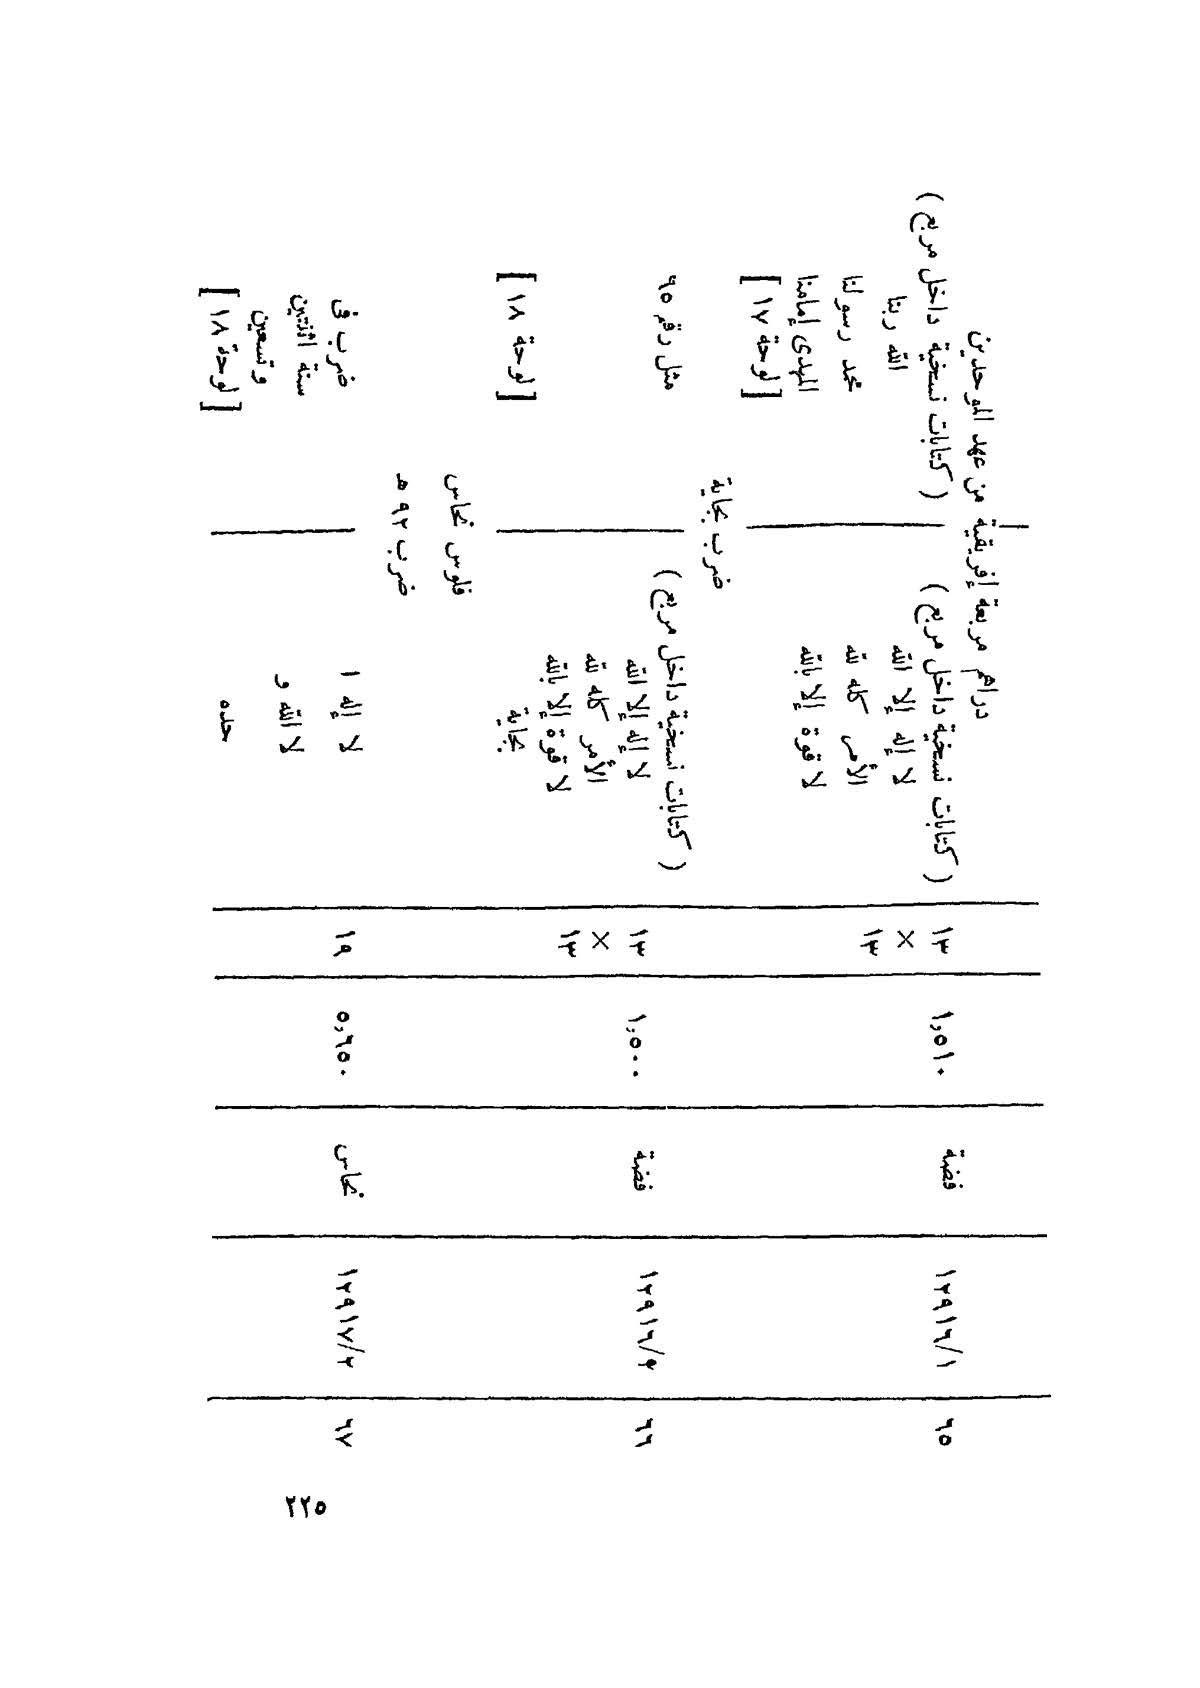 دراهم مربعة إفريقية من عهد الموحدين
٦٥
١٢٩١٦/١
فضة
١,٥١٠
١٣
×
١٣
(كتابات نسخية داخل مربع)
لا إله إلا الله
الأمر كله لله
لا قوة إلا بالله
(كتابات نسخية داخل مربع)
الله ربنا
محمد رسولنا
المهدى إمامنا
[لوحة ١٧]
ضرب بجاية
٦٦
١٢٩١٦/
فضة
١,٥٠٠
١٣
×
١٣
(كتابات نسخية داخل مربع)
لا إله إلا الله
الأمر كله لله
لا قوة إلا بالله
بجاية
مثل رقم ٦٥
[لوحة ١٨]
فلوس نحاس
ضرب ٩٢ هـ
٦٧
١٢٩١٧/٢
نحاس
٥,٦٥٠
١٩
لا إله ا
لا الله و
حده
ضرب فى
سنة اثنتين
وتسعين
[لوحة ١٨]
٢٢٥